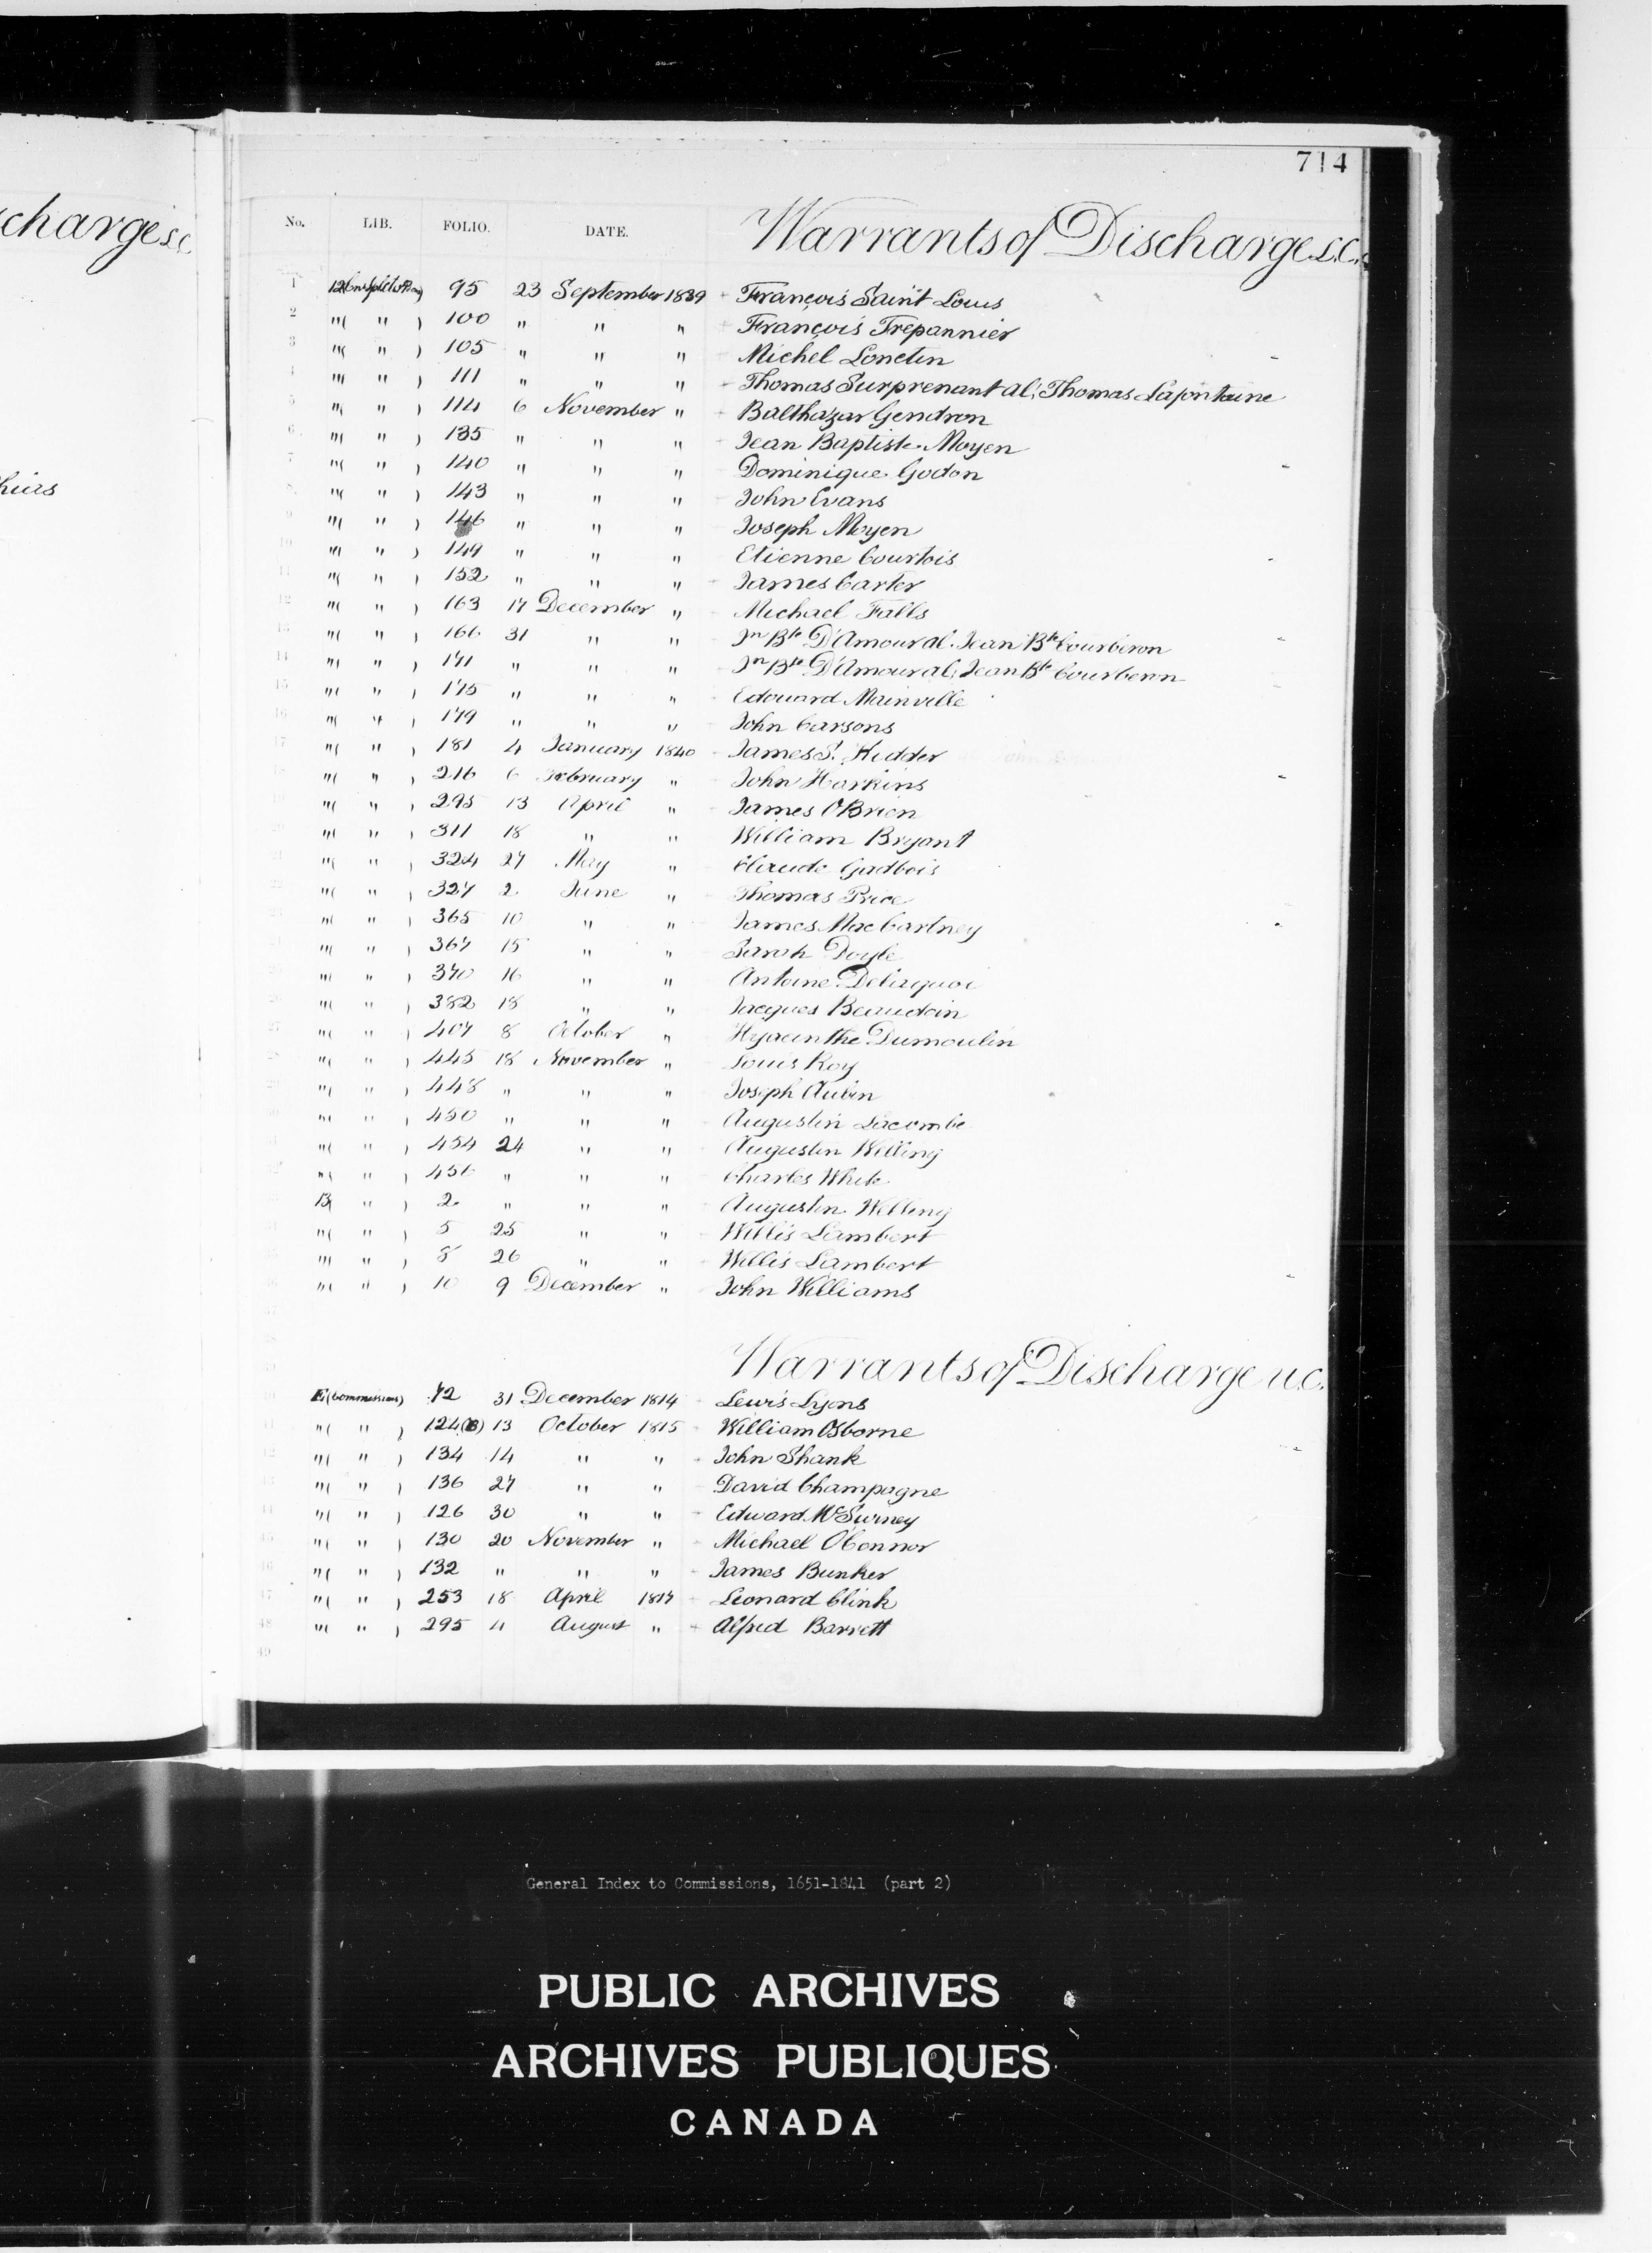 charge L.C.
hiers
714
No. LIB. FOLIO. DATE. Warrants of Discharge L.C.
1 12 95 23 September 1839 François Saint Louis
2 "( " ) 100 " " " François Trepannier
3 "( " ) 105 " " " Michel Lonctin
4 "( " ) 111 " " " Thomas Surprenant al: Thomas Lafontaine
5 "( " ) 114 6 November " Balthazar Gendron
6 "( " ) 135 " " " Jean Baptiste Moyen
7 "( " ) 140 " " " Dominique Godon
8 "( " ) 143 " " " John Evans
9 "( " ) 146 " " " Joseph Moyen
10 "( " ) 149 " " " Etienne Courtois
11 "( " ) 152 " " " James Carter
12 "( " ) 163 17 December " Michael Falls
13 "( " ) 166 31 " " Jn Bte D'Amour al. Jean Bte Courberon
14 "( " ) 171 " " " Jn Bte D'Amour al; Jean Bte Courberon
15 "( " ) 175 " " " Edouard Mainville
16 "( " ) 179 " " " John Carsons
17 "( " ) 181 4 January 1840 James S. Kidder
18 "( " ) 216 6 February " John Harkins
19 "( " ) 295 13 April " James O'Brien
20 "( " ) 311 18 " " William Bryant
21 "( " ) 324 27 May " Claude Gadbois
22 "( " ) 327 2 June " Thomas Price
23 "( " ) 365 10 " " James MacCartney
24 "( " ) 367 15 " " Sarah Doyle
25 "( " ) 370 16 " " Antoine
26 "( " ) 382 18 " " Jacques Beaudoin
27 "( " ) 407 8 October " Hyacinthe Dumoulin
28 "( " ) 445 18 November " Louis Roy
29 "( " ) 448 " " " Joseph Aubin
30 "( " ) 450 " " " Augustin Lacombe
31 "( " ) 454 24 " " Augustin Welling
32 "( " ) 456 " " " Charles White
33 13( " ) 2 " " " Augustin Welling
34 "( " ) 5 25 " " Willis Lambert
35 "( " ) 8 26 " " Willis Lambert
36 "( " ) 10 9 December " John Williams
37
38
39 Warrants of Discharge U.C.
40 E (Commissions) 72 31 December 1814 Lewis Lyons
41 "( " ) 124(B) 13 October 1815 William Osborne
42 "( " ) 134 14 " " John Shank
43 "( " ) 136 27 " " David Champagne
44 "( " ) 126 30 " " Edward McSwiney
45 "( " ) 130 20 November " Michael O'Connor
46 "( " ) 132 " " " James Bunker
47 "( " ) 253 18 April 1817 Leonard Clink
48 "( " ) 295 11 August " Alfred Barrett
49
General Index to Commissions, 1651-1841 (part 2)
PUBLIC ARCHIVES
ARCHIVES PUBLIQUES
CANADA